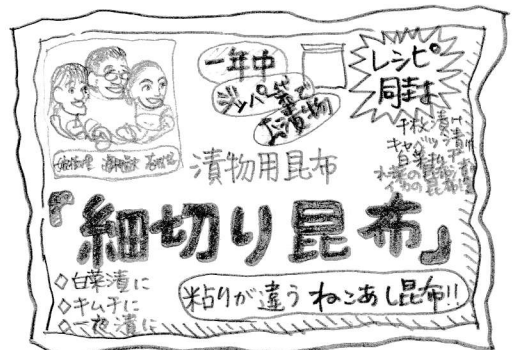 一年中
ジッパー等で
お漬物
レシピ
同封
千枚漬け
キャベツ漬け
漬物用昆布
『細切り昆布』
◇白菜漬に
◇キムチに
◇一夜漬に
粘りが違う ねこあし昆布!!